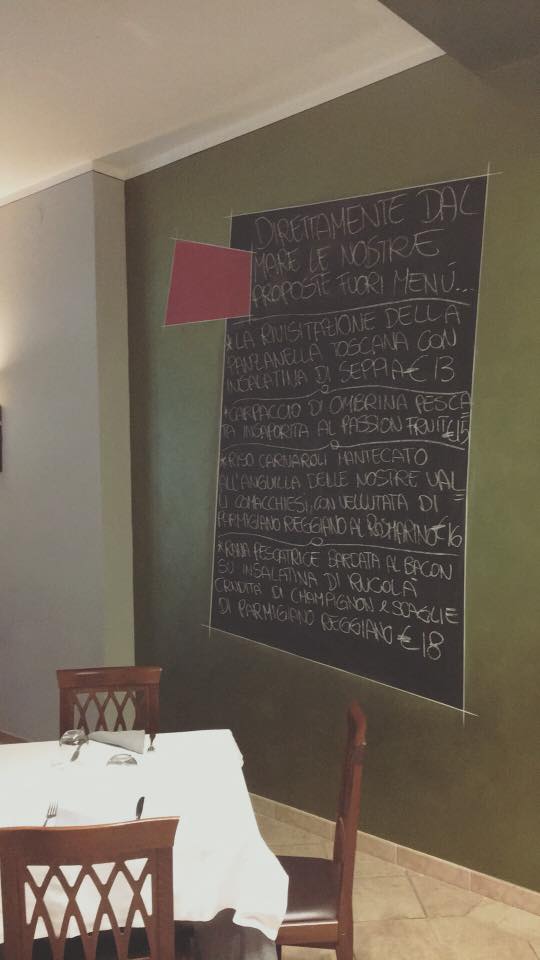 DIRETTAMENTE DAL
MARE LE NOSTRE
PROPOSTE FUORI MENÚ...
*LA RIVISITAZIONE DELLA
PANZANELLA TOSCANA CON
INSALATINA DI SEPPIA €13
*CARPACCIO DI OMBRINA PESCA
TA INSAPORITA AL PASSION FRUIT €15
*RISO CARNAROLI MANTECATO
ALL'ANGUILLA DELLE NOSTRE VAL
LI COMACCHIESI, CON VELLUTATA DI
PARMIGIANO REGGIANO AL ROSMARINO €16
*RANA PESCATRICE BARDATA AL BACON
SU INSALATINA DI RUCOLA
CRUDITÀ DI CHAMPIGNON e SCAGLIE
DI PARMIGIANO REGGIANO €18